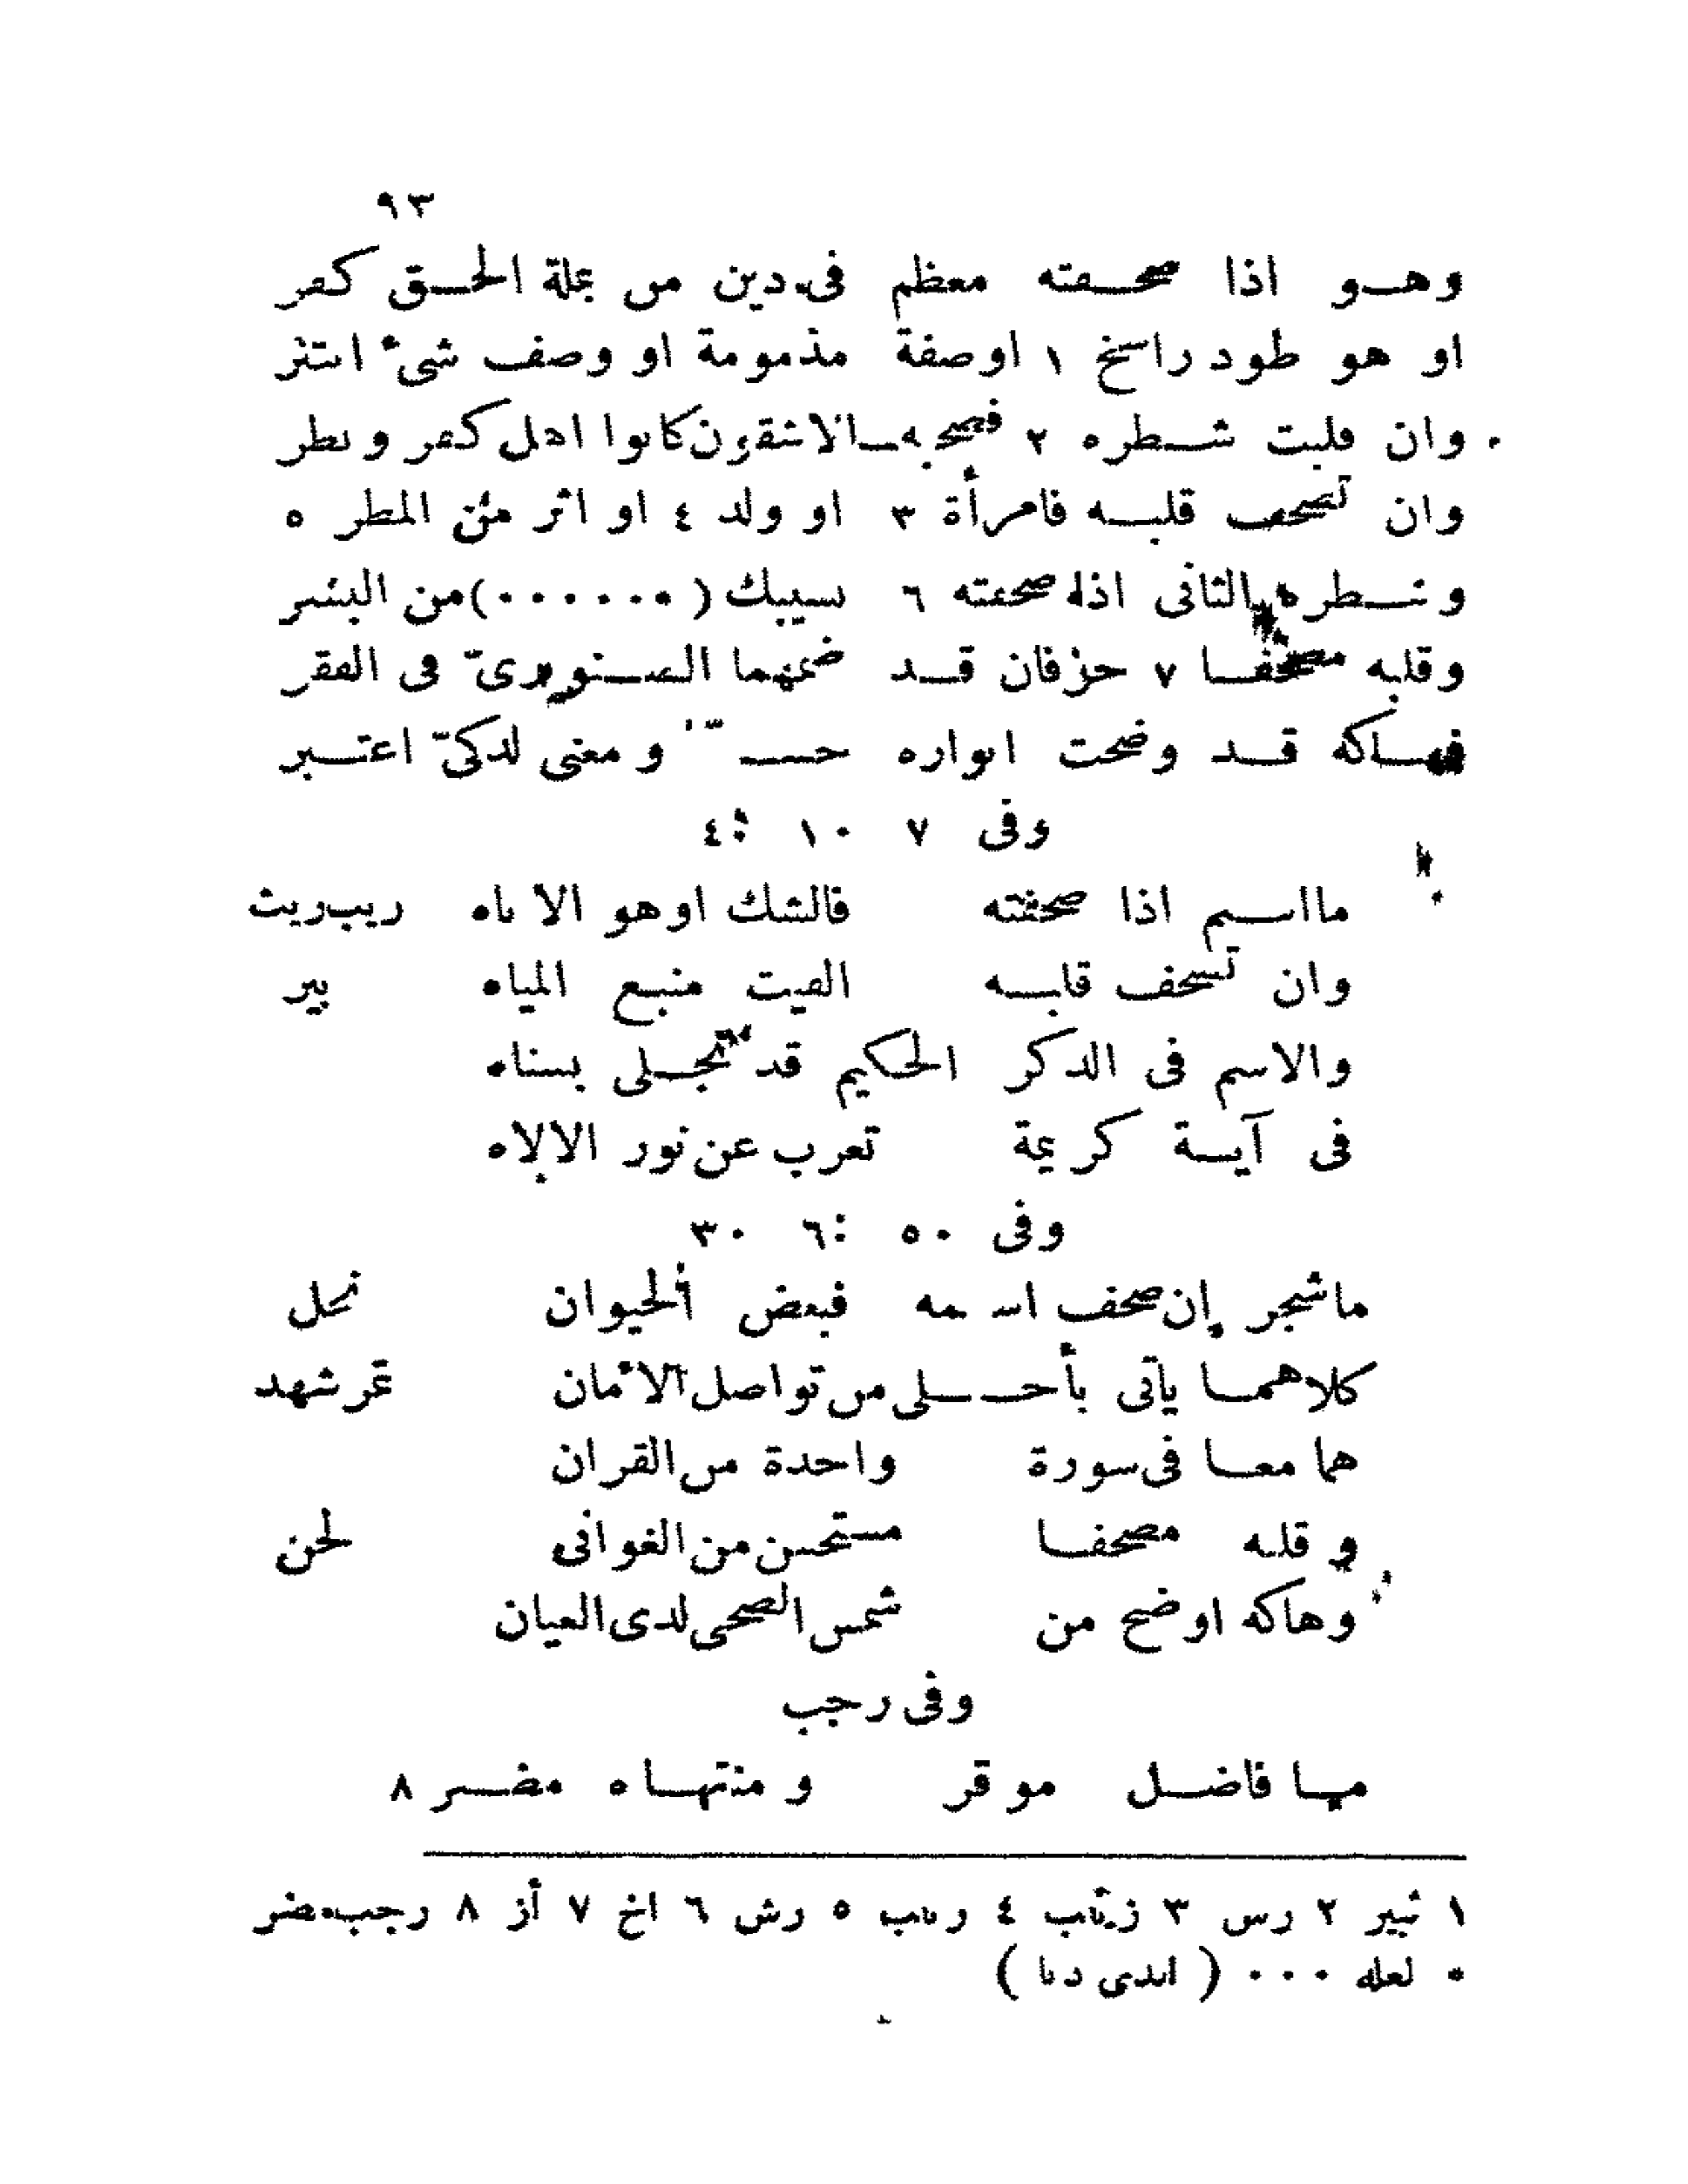 ٩٣
وهو اذا صحفته معظم فى دين من بملة الحق كفر
او هو طود راسخ ١ او صفة مذمومة او وصف شىء انتثر
وان قلبت شطره ٢ الاشقون كانوا اهل كفر وبطر
وان تصحف قلبه فامرأة ٣ او ولد ٤ او اثر من المطر ٥
وشطره الثانى اذا صحفته ٦ نسيبك (٠٠٠٠٠٠) من البشر
وقلبه مصحفا ٧ حرفان قد ضمهما الصنوبرى فى الفقر
فهاكه قد وضحت انواره ومعنى لذكىّ اعتبر
وفى ٧ ١٠ ٤
ما اسم اذا صحفته فالشك او هو الاناه ريب ريث
وان تصحف قلبه الفيت منبع المياه بير
والاسم فى الذكر الحكيم قد تجلى بسناه
فى آية كريمة تعرب عن نور الالاه
وفى ٥٠ ٦ ٣٠
ما شجر إن صحف اسمه فبعض الحيوان نحل
كلاهما يأتى بأحلى من تواصل الامان تمر شهد
هما معا فى سورة واحدة من القران
وقلبه مصحفا مستحسن من الغوانى لحن
وهاكه اوضح من شمس الضحى لدى العيان
وفى رجب
ما فاضل موقر ومنتهاه مضر ٨
١ ثبير ٢ رس ٣ زينب ٤ ربيب ٥ رش ٦ اخ ٧ أز ٨ رجب مضر
* لعله ٠٠٠ (اندى دنا)